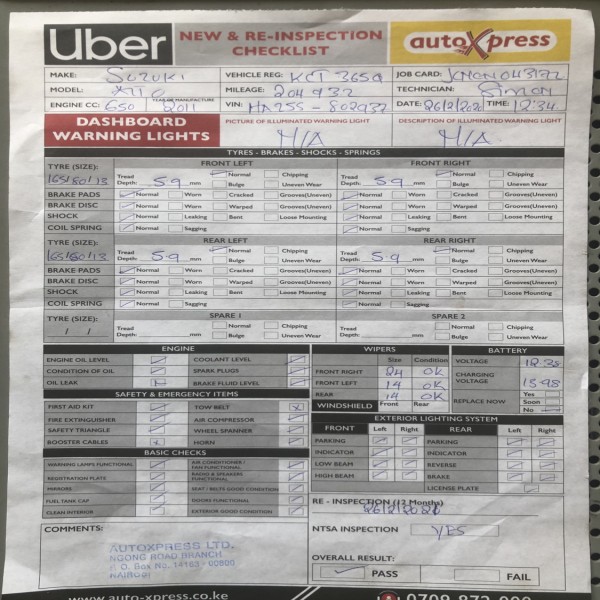 Uber NEW & RE-INSPECTION CHECKLIST autoXpress
MAKE: SUZUKI VEHICLE REG: KCT 365Q JOB CARD:
MODEL: ALTO MILEAGE: 204932 TECHNICIAN: Simon
ENGINE CC: 650 YEAR OF MANUFACTURE 2011 VIN: HA25S - 802932 DATE: TIME: 12:34
DASHBOARD WARNING LIGHTS PICTURE OF ILLUMINATED WARNING LIGHT N/A DESCRIPTION OF ILLUMINATED WARNING LIGHT N/A
TYRES - BRAKES - SHOCKS - SPRINGS
TYRE (SIZE): FRONT LEFT FRONT RIGHT
165/80/13 Tread Depth: 5.9 mm Normal Chipping Bulge Uneven Wear Tread Depth: 5.9 mm Normal Chipping Bulge Uneven Wear
BRAKE PADS Normal Worn Cracked Grooves(Uneven) Normal Worn Cracked Grooves(Uneven)
BRAKE DISC Normal Worn Warped Grooves(Uneven) Normal Worn Warped Grooves(Uneven)
SHOCK Normal Leaking Bent Loose Mounting Normal Leaking Bent Loose Mounting
COIL SPRING Normal Sagging Normal Sagging
TYRE (SIZE): REAR LEFT REAR RIGHT
165/80/13 Tread Depth: 5.9 mm Normal Chipping Bulge Uneven Wear Tread Depth: 5.9 mm Normal Chipping Bulge Uneven Wear
BRAKE PADS Normal Worn Cracked Grooves(Uneven) Normal Worn Cracked Grooves(Uneven)
BRAKE DISC Normal Worn Warped Grooves(Uneven) Normal Worn Warped Grooves(Uneven)
SHOCK Normal Leaking Bent Loose Mounting Normal Leaking Bent Loose Mounting
COIL SPRING Normal Sagging Normal Sagging
TYRE (SIZE): SPARE 1 SPARE 2
/ / Tread Depth: mm Normal Chipping Bulge Uneven Wear Tread Depth: mm Normal Chipping Bulge Uneven Wear
ENGINE
ENGINE OIL LEVEL COOLANT LEVEL
CONDITION OF OIL SPARK PLUGS
OIL LEAK BRAKE FLUID LEVEL
SAFETY & EMERGENCY ITEMS
FIRST AID KIT TOW BELT X
FIRE EXTINGUISHER AIR COMPRESSOR
SAFETY TRIANGLE WHEEL SPANNER
BOOSTER CABLES x HORN
BASIC CHECKS
WARNING LAMPS FUNCTIONAL AIR CONDITIONER / FAN FUNCTIONAL
REGISTRATION PLATE RADIO & SPEAKERS FUNCTIONAL
MIRRORS SEAT / BELTS GOOD CONDITION
FUEL TANK CAP DOORS FUNCTIONAL
CLEAN INTERIOR EXTERIOR GOOD CONDITION
WIPERS
Size Condition
FRONT RIGHT 24 OK
FRONT LEFT 14 OK
REAR 14 OK
WINDSHIELD Front Rear
BATTERY
VOLTAGE
CHARGING VOLTAGE 13.98
REPLACE NOW Yes Soon No
EXTERIOR LIGHTING SYSTEM
FRONT Left Right REAR Left Right
PARKING PARKING
INDICATOR INDICATOR
LOW BEAM REVERSE
HIGH BEAM BRAKE
LICENSE PLATE
RE - INSPECTION (12 Months)
NTSA INSPECTION YES
OVERALL RESULT:
PASS FAIL
COMMENTS:
AUTOXPRESS LTD.
NGONG ROAD BRANCH
P. O. Box No. 14163 - 00800
NAIROBI
www.auto-xpress.co.ke